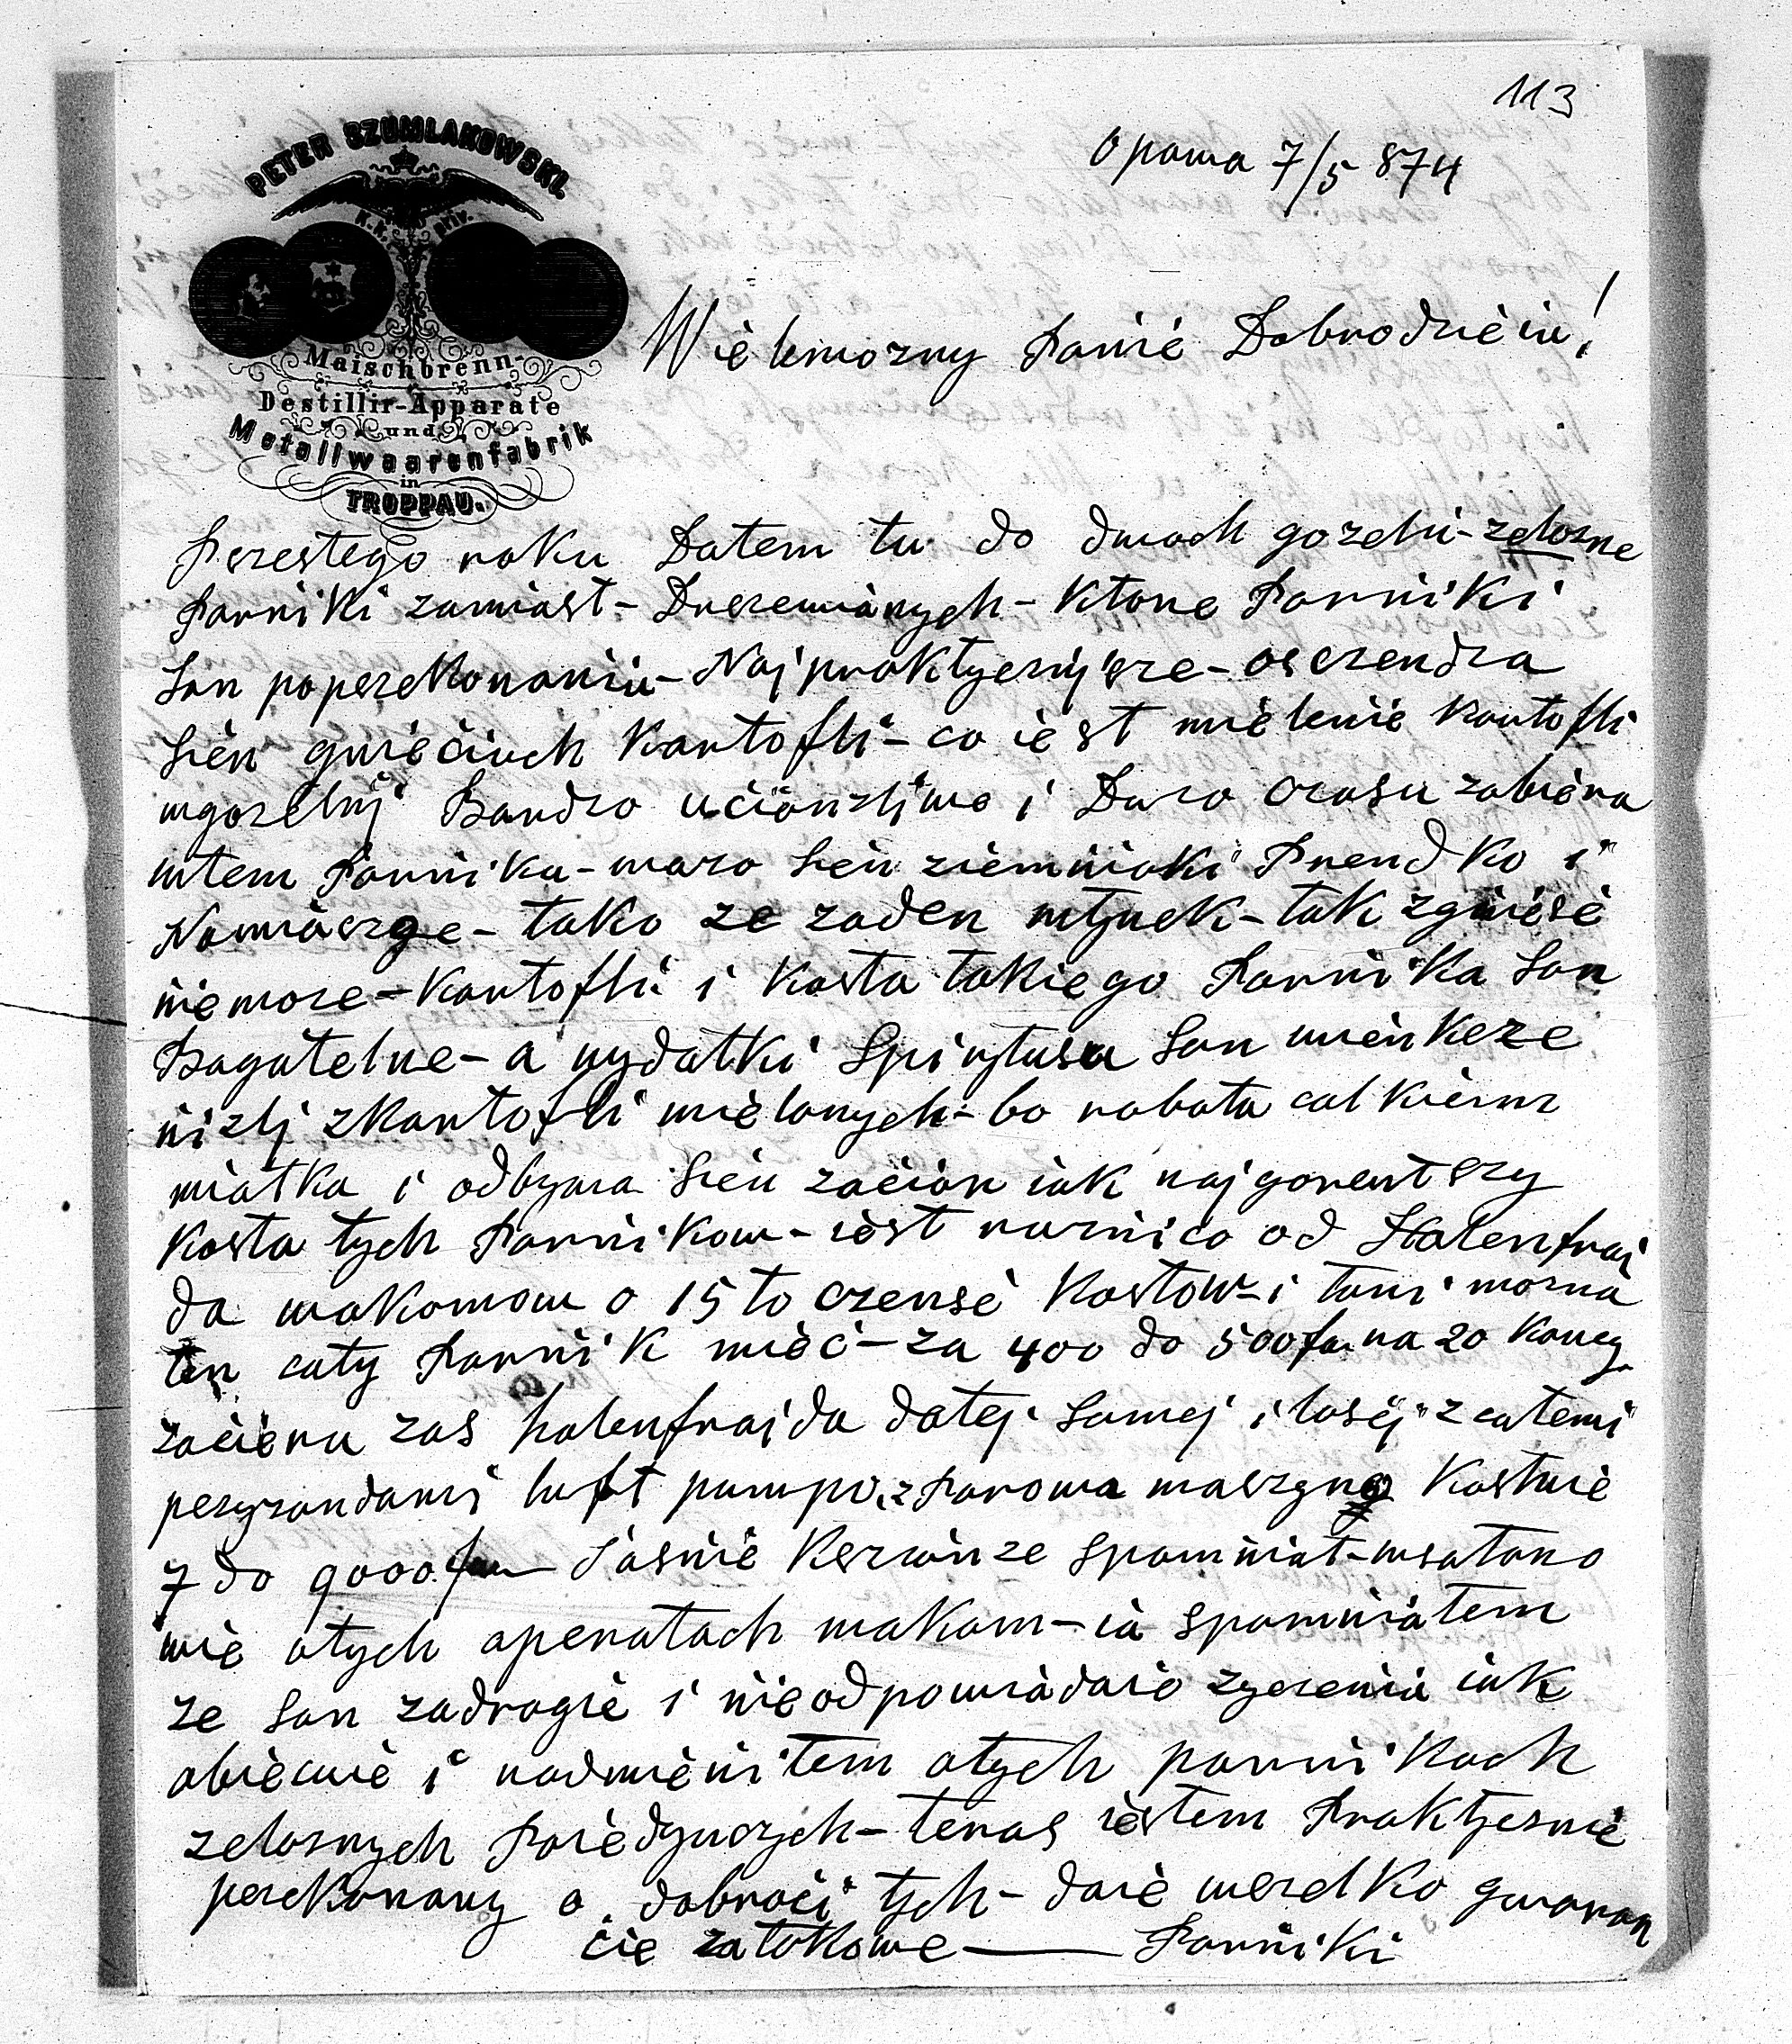 113
Opawa 7/5 874
PETER SZUMLAKOWSKI.
K.K. priv.
Maischbrenn-
Destillir-Apparate
und
Metallwaarenfabrik
in
TROPPAU.
Wielmozny Panie Dobrodzieiu!
Przestego roku Datem tu do dwoch gozelni-zelozne
Parniki zamiast-Drezewianych-Ktore Parniki
San poperekonaniu-Najpraktyczniejsze-osczendza
sien gnieciuch Kartofli-co iest mielenie Kartofli
wgozelnj Bardzo uciönzljwe i Duzo czasu zabiera
wtem Parniku-wazo sien ziemniaki Prendko i
Namiaszge-tako ze zaden mlynek-tak zgniesc
niemoze-Kartofli i Kosta takiego Parnika San
Bagatelne-a wydatki Spirytusu San wienksze
nizlj zKartofli mielonych-bo robota calkiem
miatka i odbywa sien zaciar iak najgorentszy
Kosta tych Parnikow-iest roznico od Holenfraj
da wakomow o 15to czensc Kostow-i tani mozna
ten caty Parnik miec-za 400 do 500 fn na 20 Korcy
zacieru zas holenfrajda datej samej ilosci zcatemi
pezyrzondami luft pumpo, zParowa maszyno Kostuie
7 do 9000 fn Jasnie Ksrzionze spomniat-wsatano
wie otych aperatach wakom-ia spomniatem
ze San zadrogie i nieodpowiadaio zyczenia iak
obiecuie i nadmienitem otych parnikach
zeloznych Poiedynczych-teras iestem Praktyesnie
perekonany o dobroci tych-daie wszelko gwaran
cie zatokowe — Parniki